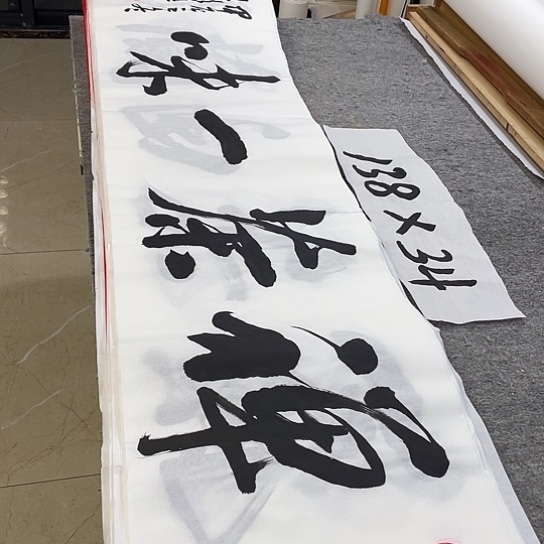 禅茶一味
138×34